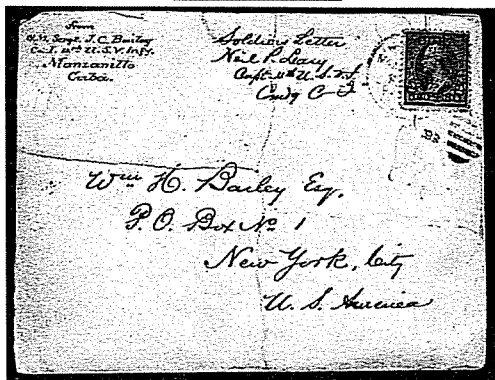 From
Q.M. Sergt. J. C. Bailey
Co. I. U.S.V. Infy.
Manzanillo
Cuba.
Soldiers Letter
Neil P. Leary
Capt. U.S.V.I.
Cmdg Co I
Wm H. Bailey Esq.
P.O. Box No 1
New York, City
U. S. America